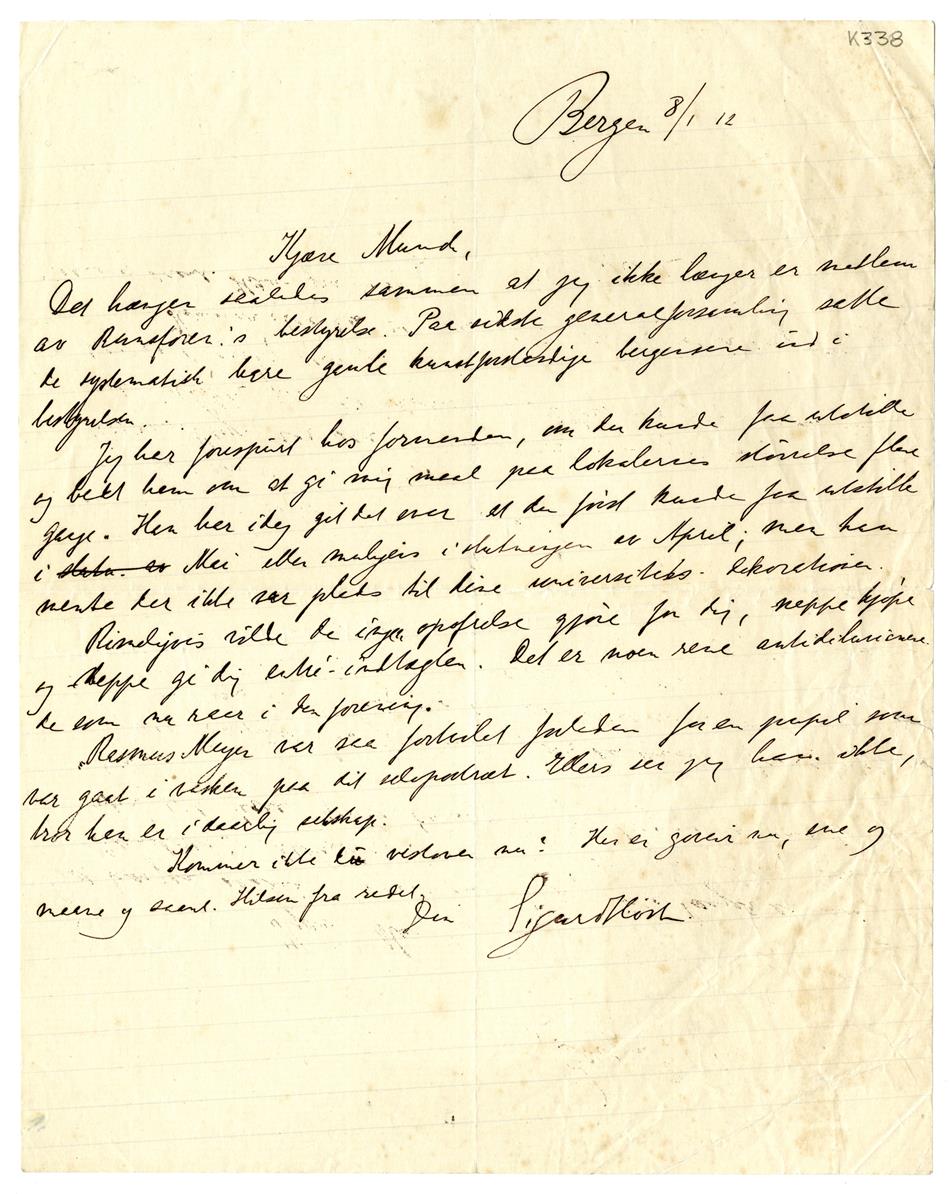 K338
Bergen 8/1 12
Kjære Munch,
Det hænger saaledes sammen at jeg ikke længer er medlem
av Kunstforen:s bestyrelse. Paa sidste generalforsamling satte
de systematisk bare gamle kunstforstandige bergensere ind i
bestyrelsen.
Jeg har forespurt hos formanden, om du kunde faa utstille
og bedt ham om at gi mig maal paa lokalernes størrelse flere
gange. Han har idag git det svar at du først kunde faa utstille
i slutn. av Mai eller muligens i slutningen av April; men han
mente der ikke var plads til dine universitets-dekorationer.
Rimeligvis vilde de ingen opofrelse gjøre for dig, neppe kjøpe
og neppe gi dig entré-indtægten. Det er noen rene antidiluvianere
de som nu raar i den forening.
Rasmus Meyer var saa fortvilet forleden for en pupil som
var gaat i vasken paa dit selvportræt. Ellers ser jeg ham ikke,
tror han er i daarlig selskap.
Kommer ikke du vestover nu? Her er nu, sne og
maane og saant. Hilsen fra
Din Sigurd Høst